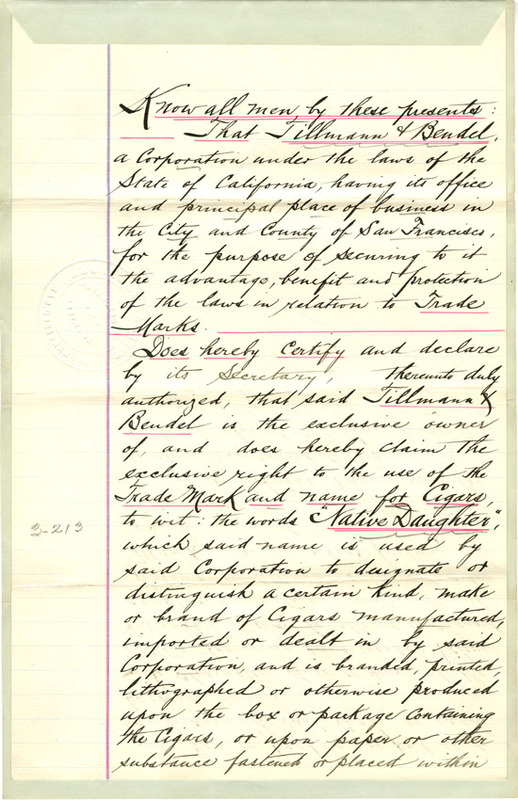 Know all men by these presents:
That Tillmann & Bendel,
a Corporation under the laws of the
State of California, having its office
and principal place of business in
the City and County of San Francisco,
for the purpose of securing to it
the advantage, benefit and protection
of the laws in relation to Trade
Marks.
Does hereby Certify and declare
by its Secretary, thereunto duly
authorized, that said Tillmann &
Bendel is the exclusive owner
of, and does hereby claim the
exclusive right to the use of the
Trade Mark and name for Cigars,
3-213
to wit: the words "Native Daughter",
which said name is used by
said Corporation to designate or
distinguish a certain kind, make
or brand of Cigars manufactured,
imported or dealt in by said
Corporation, and is branded, printed,
lithographed or otherwise produced
upon the box or package containing
the Cigars, or upon paper or other
substance fastened or placed within